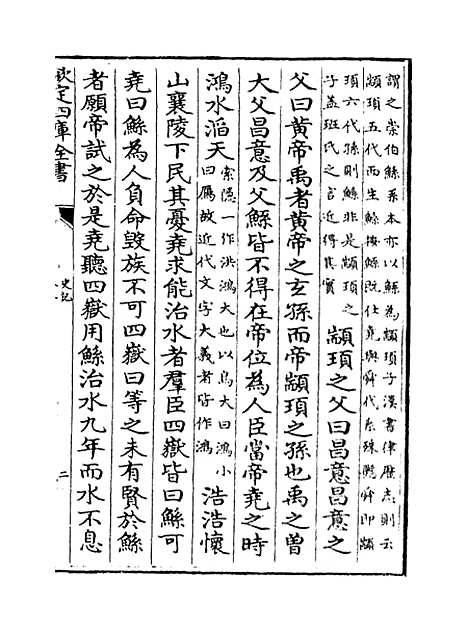 謂之崇伯鯀系本亦以鯀為顓頊子漢書律歷志則云
顓頊五代而生鯀按鯀既仕堯與舜代系殊懸舜即顓
頊六代孫則鯀非是顓頊之
子蓋班氏之言近得其實
顓頊之父曰昌意昌意之
父曰黄帝禹者黄帝之玄孫而帝顓頊之孫也禹之曽
大父昌意及父鯀皆不得在帝位為人臣當帝堯之時
鴻水滔天
索隱一作洪鴻大也以鳥大曰鴻小
曰鴈故近代文字大義者皆作鴻
浩浩懷
山襄陵下民其憂堯求能治水者羣臣四嶽皆曰鯀可
堯曰鯀為人負命毁族不可四嶽曰等之未有賢於鯀
者願帝試之於是堯聽四嶽用鯀治水九年而水不息
欽定四庫全書
史記
二